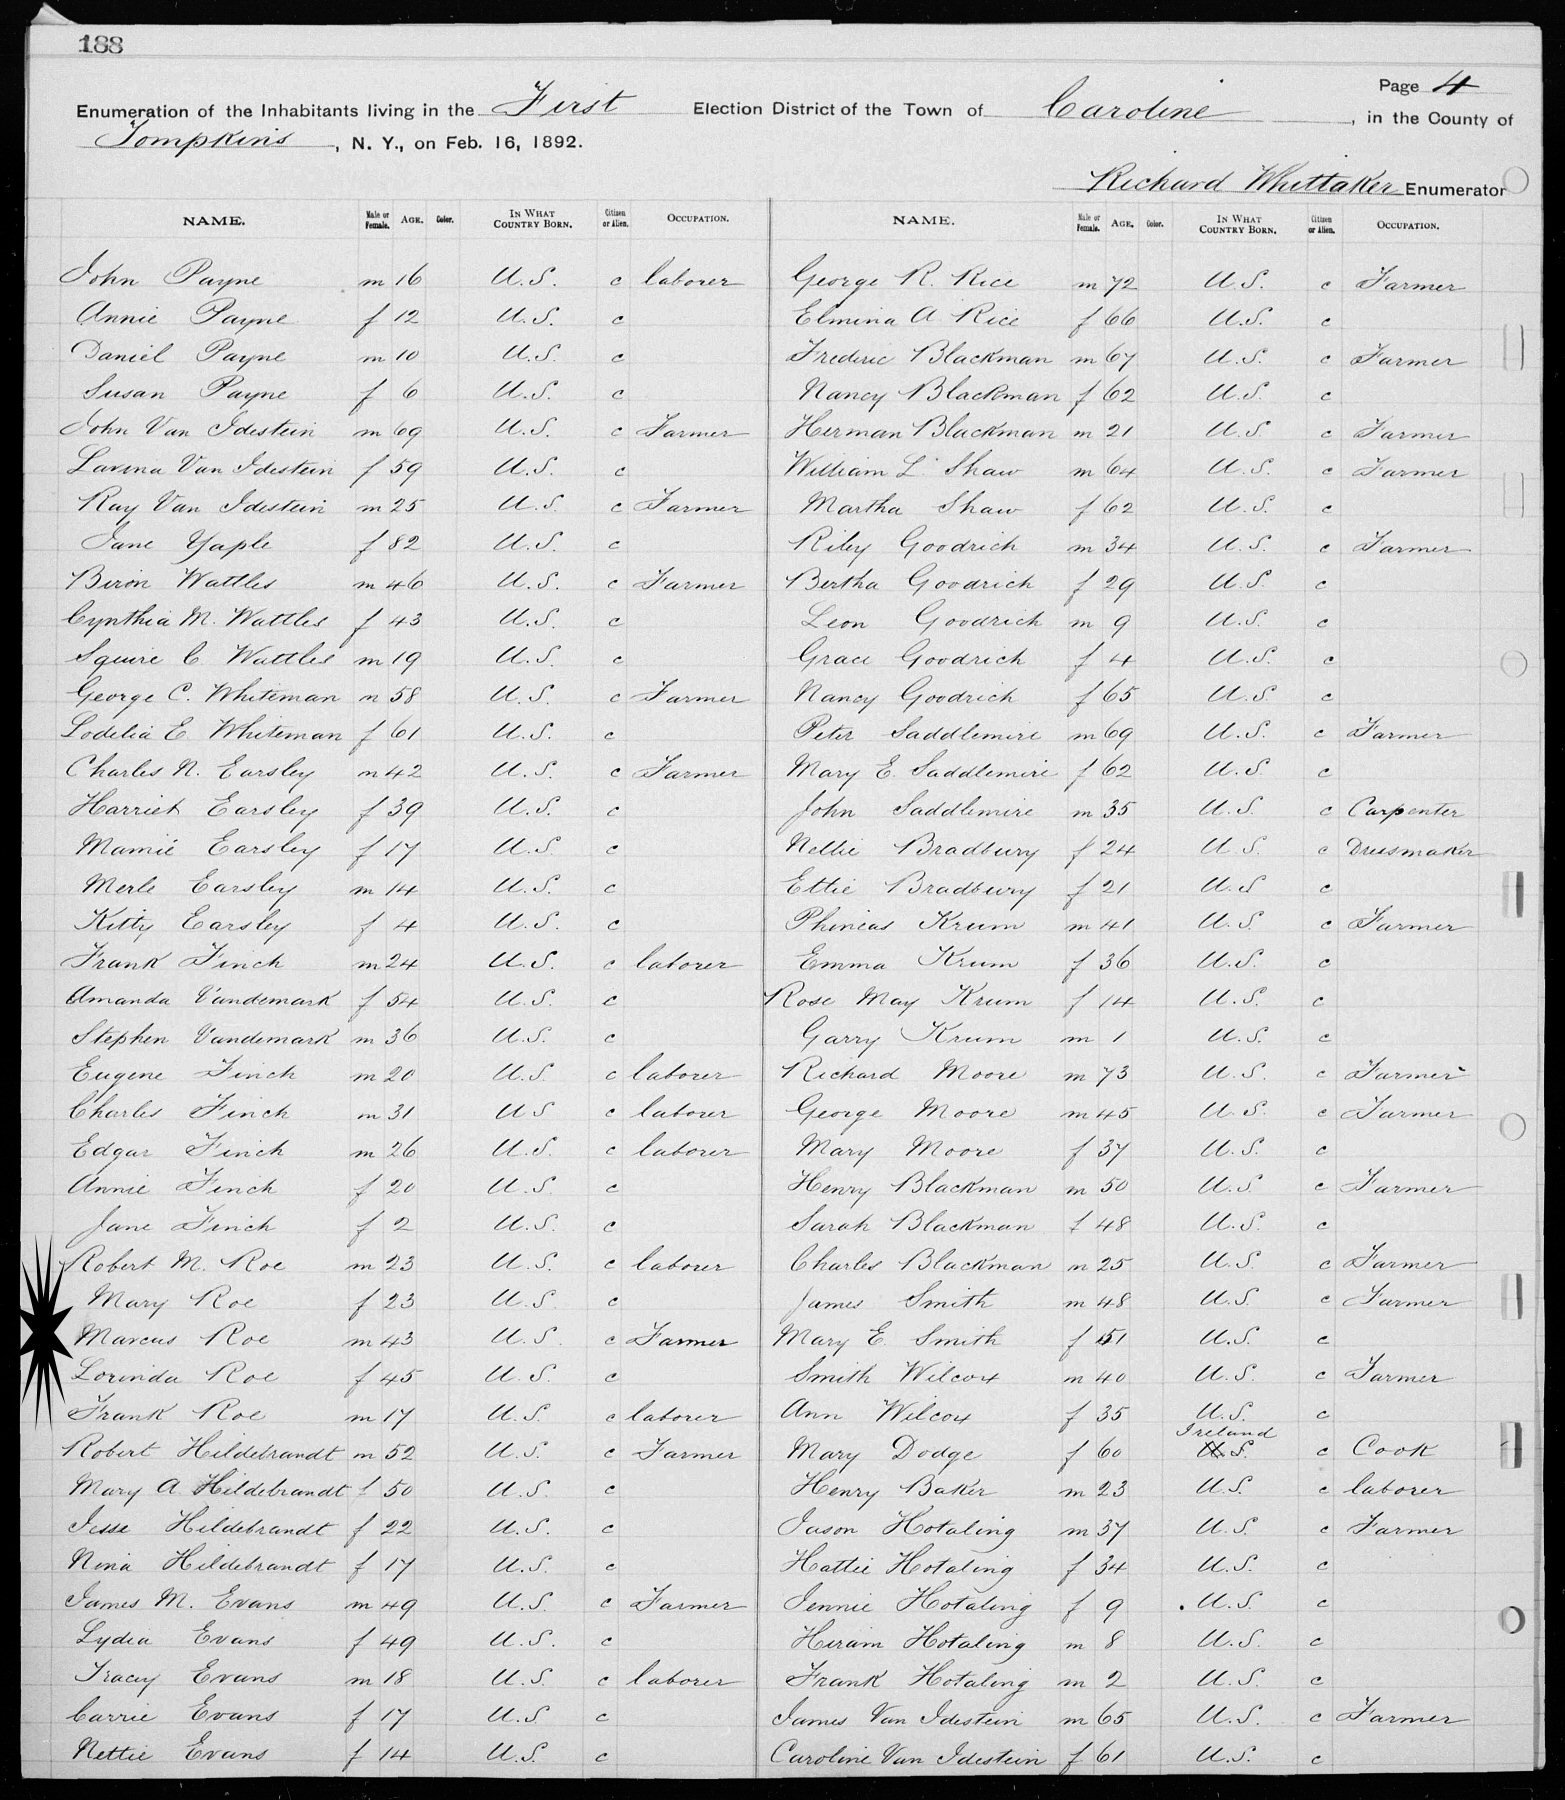 188
Page 4
Enumeration of the Inhabitants living in the First Election District of the Town of Caroline, in the County of
Tompkins, N. Y., on Feb. 16, 1892.
Richard Whittaker Enumerator
NAME. Male or Female. AGE. Color. IN WHAT COUNTRY BORN. Citizen or Alien. OCCUPATION.
John Payne m 16 U.S. c laborer
Annie Payne f 12 U.S. c
Daniel Payne m 10 U.S. c
Susan Payne f 6 U.S. c
John Van Idestein m 69 U.S. c Farmer
Lavina Van Idestein f 59 U.S. c
Ray Van Idestein m 25 U.S. c Farmer
Jane Yaple f 82 U.S. c
Biron Wattles m 46 U.S. c Farmer
Cynthia M. Wattles f 43 U.S. c
Squire C Wattles m 19 U.S. c
George C. Whiteman m 58 U.S. c Farmer
Lodelia E. Whiteman f 61 U.S. c
Charles N. Earsley m 42 U.S. c Farmer
Harriet Earsley f 39 U.S. c
Mamie Earsley f 17 U.S. c
Merle Earsley m 14 U.S. c
Kitty Earsley f 4 U.S. c
Frank Finch m 24 U.S. c laborer
Amanda Vandemark f 54 U.S. c
Stephen Vandemark m 36 U.S. c
Eugene Finch m 20 U.S. c laborer
Charles Finch m 31 U S c laborer
Edgar Finch m 26 U.S. c laborer
Annie Finch f 20 U.S. c
Jane Finch f 2 U.S. c
Robert M. Roe m 23 U.S. c laborer
Mary Roe f 23 U.S. c
Marcus Roe m 43 U.S. c Farmer
Lorinda Roe f 45 U.S. c
Frank Roe m 17 U.S. c laborer
Robert Hildebrandt m 52 U.S. c Farmer
Mary A Hildebrandt f 50 U.S. c
Jesse Hildebrandt f 22 U.S. c
Nina Hildebrandt f 17 U.S. c
James M. Evans m 49 U.S. c Farmer
Lydia Evans f 49 U.S. c
Tracey Evans m 18 U.S. c laborer
Carrie Evans f 17 U.S. c
Nettie Evans f 14 U.S. c
NAME. Male or Female. AGE. Color. IN WHAT COUNTRY BORN. Citizen or Alien. OCCUPATION.
George R. Rice m 72 U.S. c Farmer
Elmina A Rice f 66 U.S. c
Frederic Blackman m 67 U.S. c Farmer
Nancy Blackman f 62 U.S. c
Herman Blackman m 21 U.S. c Farmer
William L Shaw m 64 U.S. c Farmer
Martha Shaw f 62 U.S. c
Riley Goodrich m 34 U.S. c Farmer
Bertha Goodrich f 29 U.S. c
Leon Goodrich m 9 U.S. c
Grace Goodrich f 4 U.S. c
Nancy Goodrich f 65 U.S. c
Peter Saddlemire m 69 U.S. c Farmer
Mary E. Saddlemire f 62 U.S. c
John Saddlemire m 35 U.S. c Carpenter
Nellie Bradbury f 24 U S c Dressmaker
Ettie Bradbury f 21 U.S c
Phineas Krum m 41 U.S. c Farmer
Emma Krum f 36 U.S. c
Rose May Krum f 14 U.S. c
Garry Krum m 1 U.S. c
Richard Moore m 73 U.S. c Farmer
George Moore m 45 U.S. c Farmer
Mary Moore f 37 U.S. c
Henry Blackman m 50 U.S. c Farmer
Sarah Blackman f 48 U.S. c
Charles Blackman m 25 U.S. c Farmer
James Smith m 48 U.S. c Farmer
Mary E. Smith f 51 U.S. c
Smith Wilcox m 40 U.S. c Farmer
Ann Wilcox f 35 U.S. c
Mary Dodge f 60 Ireland U.S. c Cook
Henry Baker m 23 U.S. c laborer
Jason Hotaling m 37 U.S. c Farmer
Hattie Hotaling f 34 U.S. c
Jennie Hotaling f 9 U.S. c
Hiram Hotaling m 8 U.S. c
Frank Hotaling m 2 U.S. c
James Van Idestein m 65 U.S. c Farmer
Caroline Van Idestein f 61 U.S. c